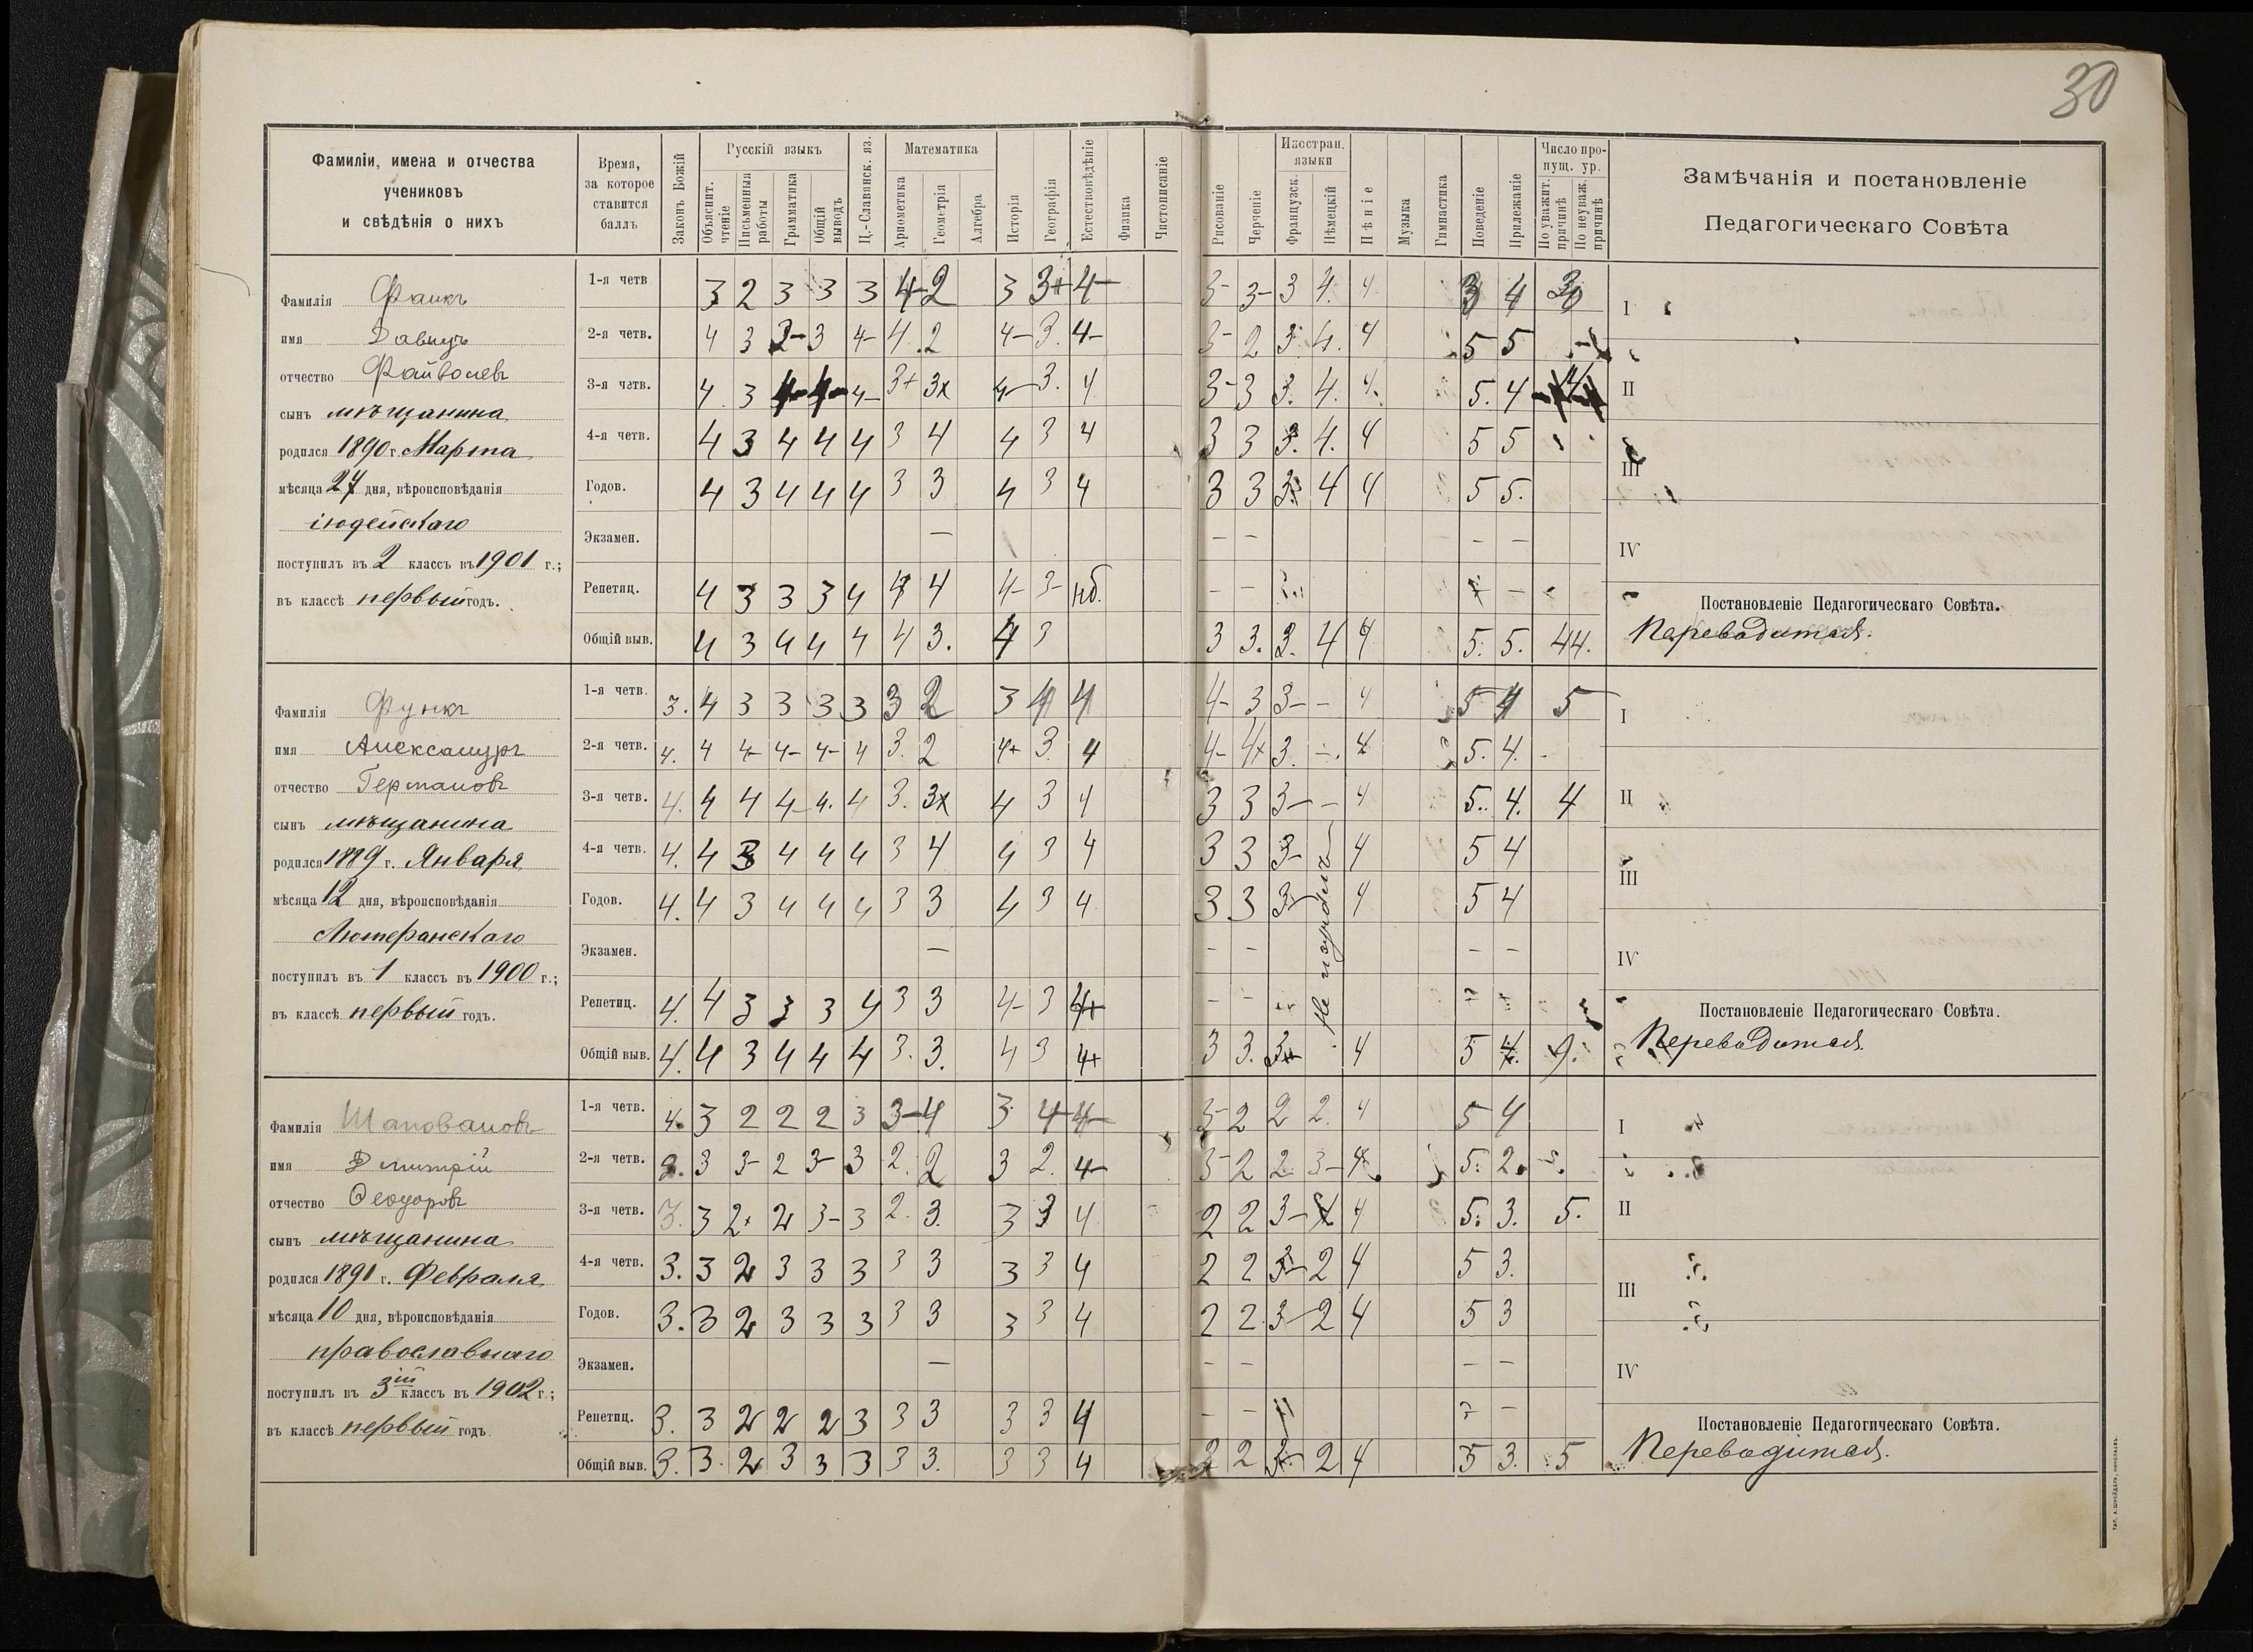 30
Фамиліи, имена и отчества
учениковъ
и свѣдѣнія о нихъ
Время,
за которое
ставится
баллъ
Законъ Божій
Русскій языкъ
Объяснит. чтеніе
Письменныя работы
Грамматика
Общій выводъ
Ц.-Славянск. яз.
Математика
Ариѳметика
Геометрія
Алгебра
Исторія
Географія
Естествовѣдѣніе
Физика
Чистописаніе
Рисованіе
Черченіе
Иностран.
языки
Французск.
Нѣмецкій
Пѣніе
Музыка
Гимнастика
Поведеніе
Прилежаніе
Число про-
пущ. ур.
По уважит. причинѣ
По неуваж. причинѣ
Замѣчанія и постановленіе
Педагогическаго Совѣта
Фамилія Фанкъ
имя Давидъ
отчество Файволевъ
сынъ мѣщанина
родился 1890 г. Марта
мѣсяца 27 дня, вѣроисповѣданія
іюдейскаго
поступилъ въ 2 классъ въ 1901 г.;
въ классѣ первый годъ.
1-я четв 3 2 3 3 3 4- 2 3 3+ 4- 3- 3- 3 4. 4 3 4 30
2-я четв. 4 3 3- 3 4- 4. 2 4- 3. 4- 3- 2 3. 4. 4 5 5
3-я четв. 4. 3 4- 4- 4- 3+ 3x 4- 3. 4 3- 3 3. 4. 4. 5. 4
4-я четв. 4 3 4 4 4 3 4 4 3 4 3 3 3. 4. 4 5 5
Годов. 4 3 4 4 4 3 3 4 3 4 3 3 3. 4 4 5 5.
Экзамен. — — — — —
Репетиц. 4 3 3 3 4 4 4 4- 3- нб. — — —
Общій выв. 4 3 4 4 4 4 3. 4 3 3 3. 3. 4 4 5. 5. 44.
I
II
III
IV
Постановленіе Педагогическаго Совѣта.
Переводится.
Фамилія Функъ
имя Александръ
отчество Германовъ
сынъ мѣщанина
родился 1889 г. Января
мѣсяца 12 дня, вѣроисповѣданія
Лютеранскаго
поступилъ въ 1 классъ въ 1900 г.;
въ классѣ первый годъ.
1-я четв. 3. 4 3 3 3 3 3 2 3 4 4 4- 3 3- - 4 5 4 5
2-я четв. 4. 4 4- 4- 4- 4 3. 2 4+ 3. 4 4- 4+ 3. -. 4 5. 4.
3-я четв. 4. 4 4 4- 4. 4 3. 3x 4 3 4 3 3 3- - 4 5. 4. 4
4-я четв. 4. 4 3 4 4 4 3 4 4 3 4 3 3 3- 4 5 4
Годов. 4. 4 3 4 4 4 3 3 4 3 4 3 3 3- 4 5 4
Экзамен. — — — — —
Репетиц. 4. 4 3 3 3 4 3 3 4- 3 4+ — —
Общій выв. 4. 4 3 4 4 4 3. 3. 4 3 4+ 3 3. 3 4 5 4. 9.
Не изучалъ
I
II
III
IV
Постановленіе Педагогическаго Совѣта.
Переводится.
Фамилія Шаповаловъ
имя Дмитрій
отчество Ѳеодоровъ
сынъ мѣщанина
родился 1891 г. Февраля
мѣсяца 10 дня, вѣроисповѣданія
православнаго
поступилъ въ 3ій классъ въ 1902 г.;
въ классѣ первый годъ
1-я четв. 4. 3 2 2 2 3 3- 4 3 4- 4- 3- 2 2 2. 4 5 4
2-я четв. 2. 3 3- 2 3- 3 2. 2 3 2. 4- 3- 2 2. 3- 4. 5. 2. 5.
3-я четв. 3. 3 2+ 2 3- 3 2. 3. 3 3 4 2 2 3- 4 5. 3. 5.
4-я четв. 3. 3 2 3 3 3 3 3 3 3 4 2 2 3- 2 4 5 3.
Годов. 3. 3 2 3 3 3 3 3 3 3 4 2 2. 3- 2 4 5 3
Экзамен. — — — — —
Репетиц. 3. 3 2 2 2 3 3 3 3 3 4 — — —
Общій выв. 3. 3. 2 3 3 3 3 3. 3 3 4 2 2 3- 2 4 5 3. 5
I
II
III
IV
Постановленіе Педагогическаго Совѣта.
Переводится.